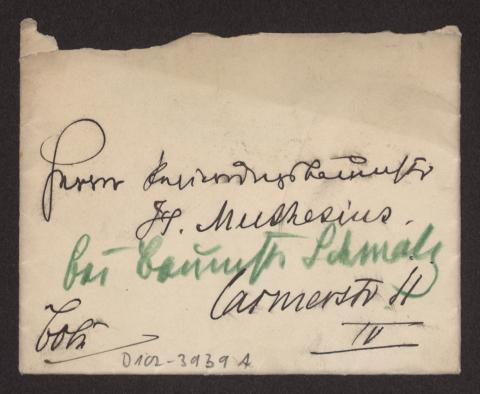 Herrn Regierungsbaumstr
H. Muthesius.
bei Baumstr Schmalz
Carmerstr 11
IV
D102-3939 A